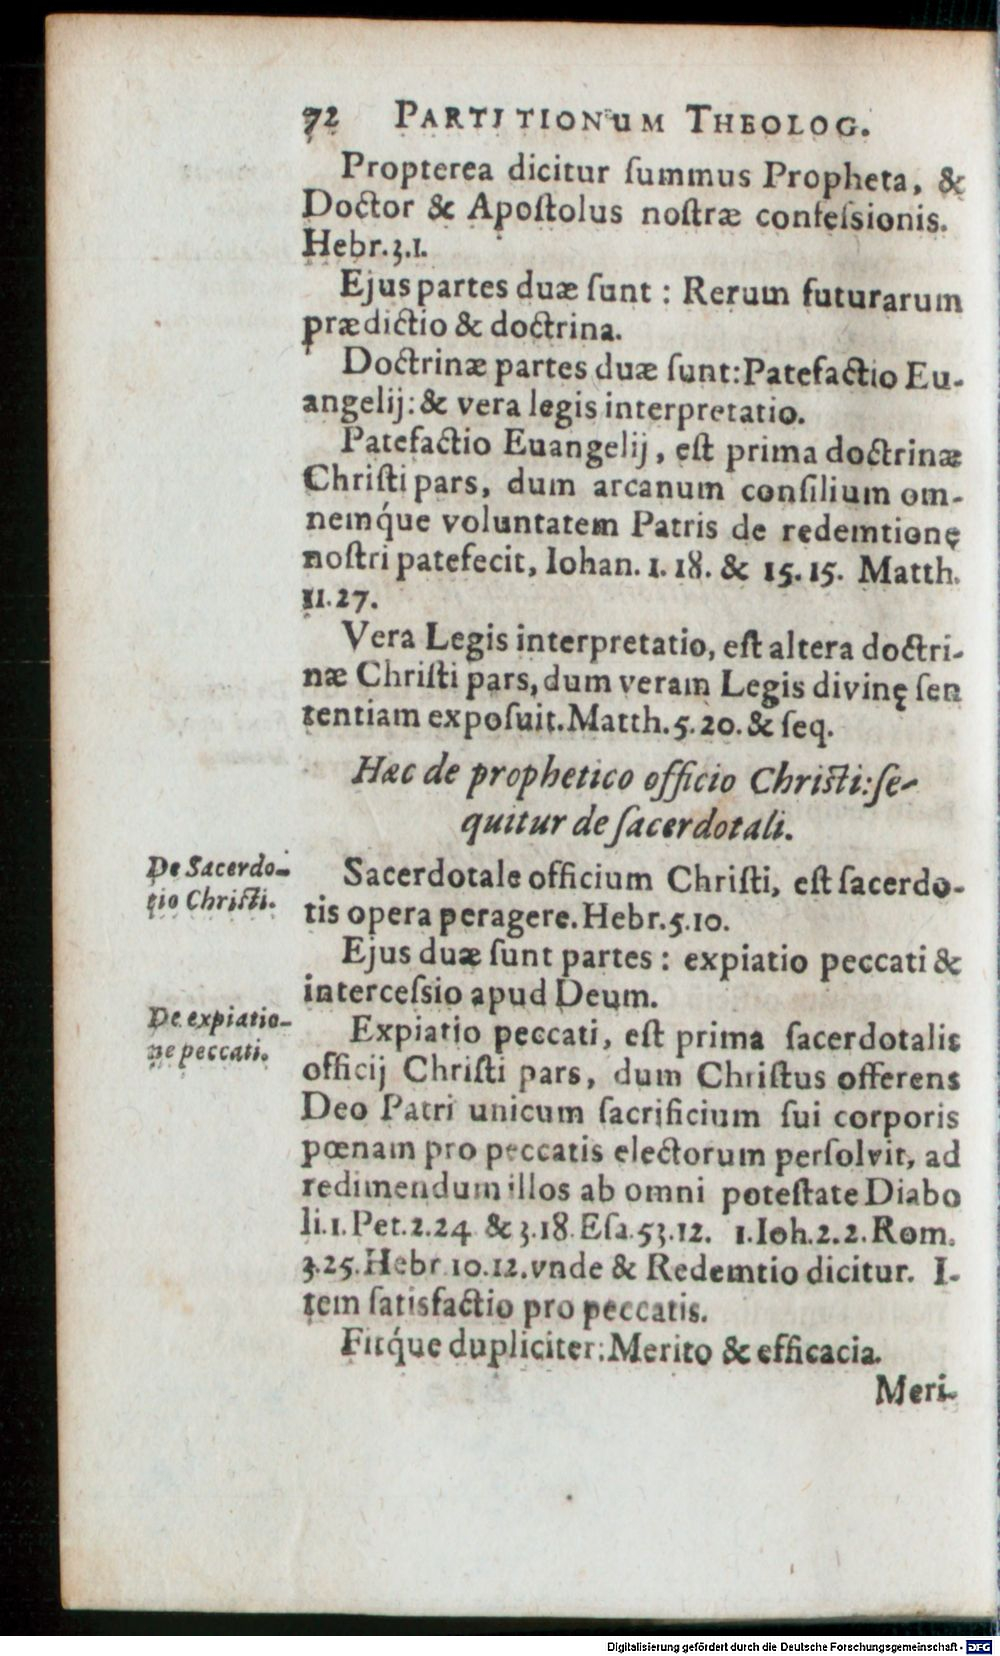 72 PARTITIONUM THEOLOG.
Propterea dicitur ſummus Propheta, &
Doctor & Apoſtolus noſtræ confeſsionis.
Hebr.3.1.
Ejus partes duæ ſunt: Rerum futurarum
prædictio & doctrina.
Doctrinæ partes duæ ſunt: Patefactio Eu-
angelij: & vera legis interpretatio.
Patefactio Euangelij, eſt prima doctrinæ
Chriſti pars, dum arcanum conſilium om-
nemq́ue voluntatem Patris de redemtionę
noſtri patefecit, Iohan. 1. 18. & 15. 15. Matth.
11.27.
Vera Legis interpretatio, eſt altera doctri-
næ Chriſti pars, dum veram Legis divinę ſen
tentiam expoſuit. Matth. 5. 20. & ſeq.
Hæc de prophetico officio Chriſti: ſe-
quitur de ſacerdotali.
De Sacerdo-
tio Chriſti.
Sacerdotale officium Chriſti, eſt ſacerdo-
tis opera peragere. Hebr. 5. 10.
Ejus duæ ſunt partes: expiatio peccati &
interceſsio apud Deum.
De expiatio-
ne peccati.
Expiatio peccati, eſt prima ſacerdotalis
officij Chriſti pars, dum Chriſtus offerens
Deo Patri unicum ſacrificium ſui corporis
pœnam pro peccatis electorum perſolvit, ad
redimendum illos ab omni poteſtate Diabo
li. 1. Pet. 2. 24 & 3. 18. Eſa. 53. 12. 1. Ioh. 2. 2. Rom.
3. 25. Hebr 10. 12. vnde & Redemtio dicitur. I-
tem ſatisfactio pro peccatis.
Fitq́ue dupliciter: Merito & efficacia.
Meri-
Digitalisierung gefördert durch die Deutsche Forschungsgemeinschaft - DFG